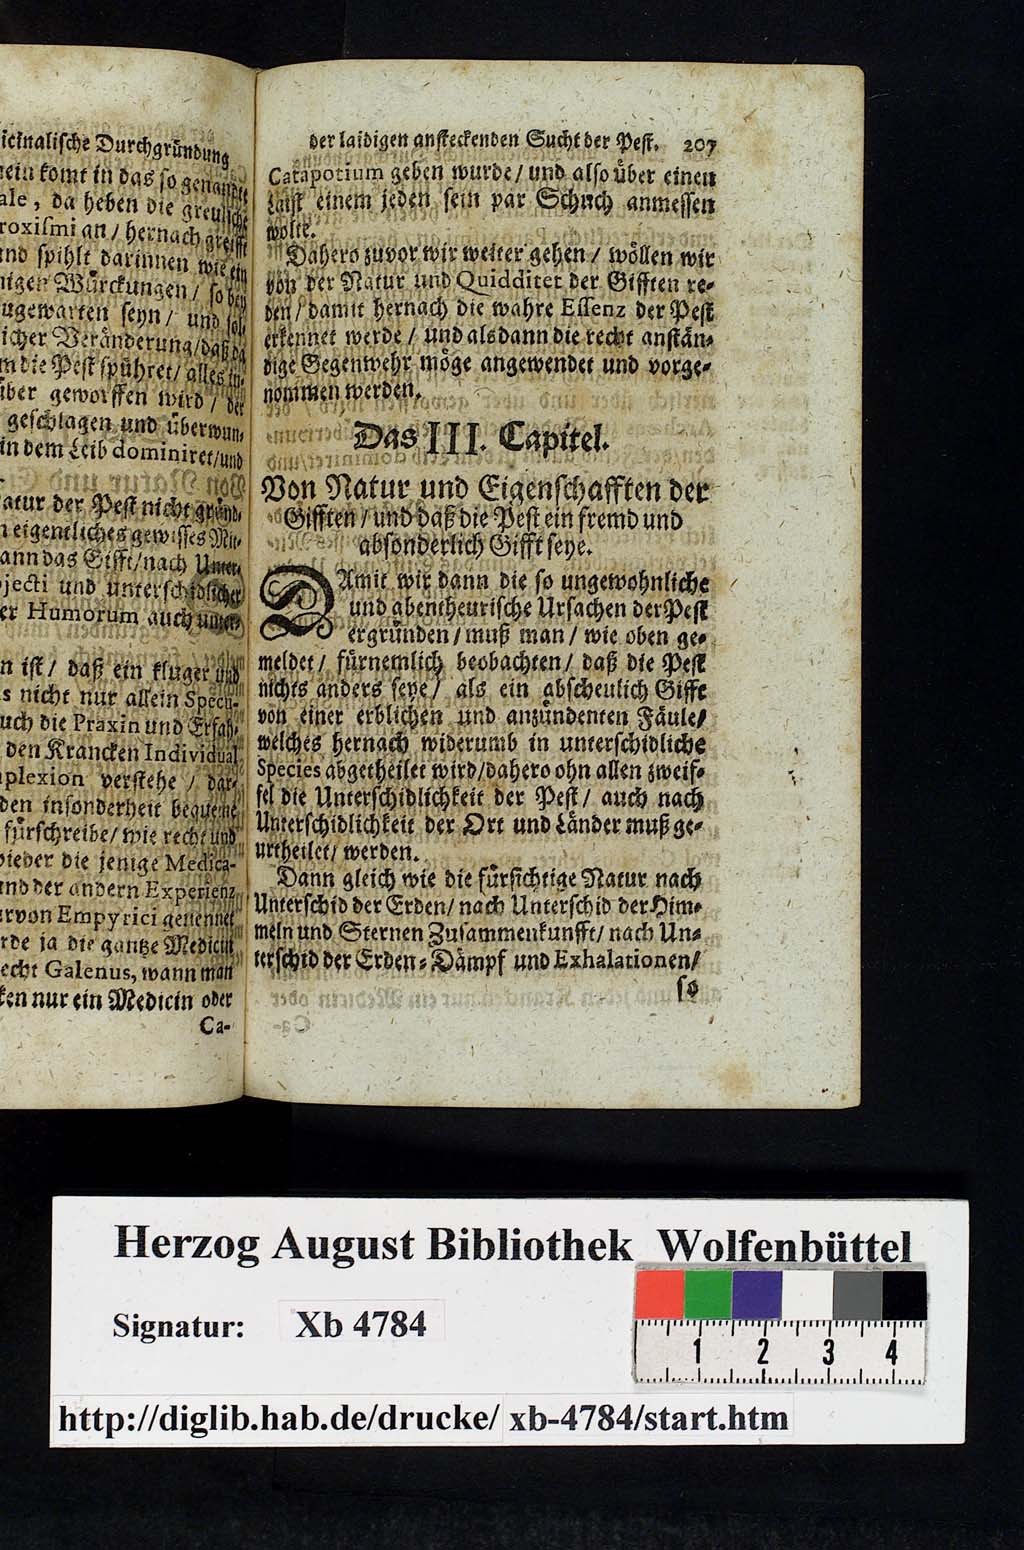 icinalische Durchgründung
komt in das so genan
ale, da heben die greuliche
roxismi an / hernach greifft
nd spihlt darinnen wie ein
nigen Würckungen / so bey
ugewarten seyn / und
icher Veränderung / daß da
die Pest spühret / alles
über geworffen wird / der
geschlagen und überwun-
in dem Leib dominiret / und
atur der Pest nicht gründ-
eigentliches gewisses Mit-
ann das Gifft / nach Unter-
jecti und unterschidlicher
er Humorum auch unter-
n ist / daß ein kluger und
s nicht nur allein Specu-
uch die Praxin und Erfah-
den Krancken Individual
plexion verstehe / dar-
den insonderheit bequeme
fürschreibe / wie recht und
wieder die jenige Medica-
und der andern Experienz
rvon Empyrici genennet
rde ja die gantze Medicin
echt Galenus, wann man
ken nur ein Medicin oder
Ca-
der laidigen ansteckenden Sucht der Pest. 207
Catapotium geben wurde / und also über einen
Laist einem jeden sein par Schuch anmessen
wolte.
Dahero zuvor wir weiter gehen / wöllen wir
von der Natur und Quidditet der Gifften re-
den / damit hernach die wahre Essenz der Pest
erkennet werde / und alsdann die recht anstän-
dige Gegenwehr möge angewendet und vorge-
nommen werden.
Das III. Capitel.
Von Natur und Eigenschafften der
Gifften / und daß die Pest ein fremd und
absonderlich Gifft seye.
DAmit wir dann die so ungewohnliche
und abentheurische Ursachen der Pest
ergründen / muß man / wie oben ge-
meldet / fürnemlich beobachten / daß die Pest
nichts anders seye / als ein abscheulich Gifft
von einer erblichen und anzündenten Fäule /
welches hernach widerumb in unterschidliche
Species abgetheilet wird / dahero ohn allen zweif-
fel die Unterschidlichkeit der Pest / auch nach
Unterschidlichkeit der Ort und Länder muß ge-
urtheilet / werden.
Dann gleich wie die fürsichtige Natur nach
Unterschid der Erden / nach Unterschid der Him-
meln und Sternen Zusammenkunfft / nach Un-
terschid der Erden-Dämpf und Exhalationen /
so
Herzog August Bibliothek Wolfenbüttel
Signatur: Xb 4784
1 2 3 4
http://diglib.hab.de/drucke/ xb-4784/start.htm